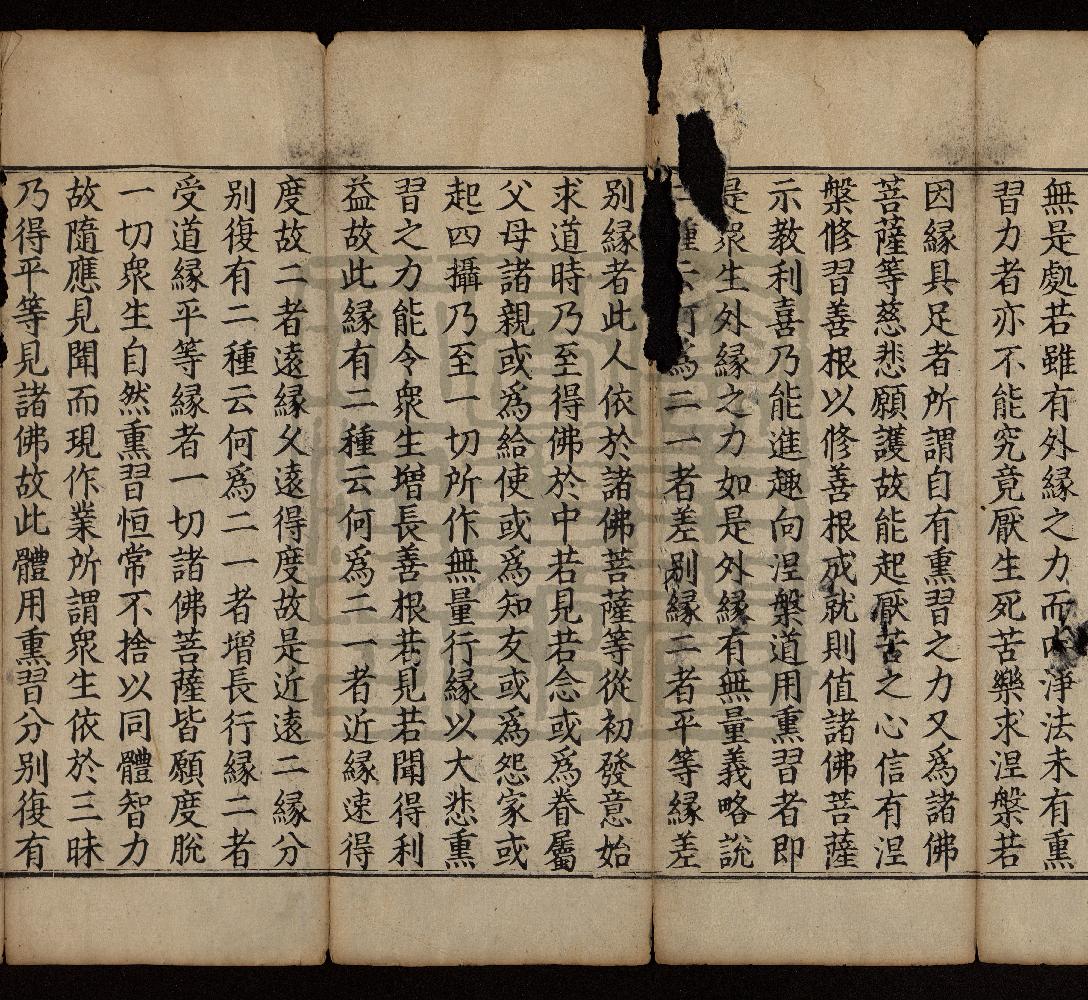 無是處若雖有外縁之力而淨法未有熏
習力者亦不能究竟厭生死苦樂求涅槃若
因縁具足者所謂自有熏習之力又爲諸佛
菩薩等慈悲願護故能起厭苦之心信有涅
槃修習善根以修善根成就則值諸佛菩薩
示教利喜乃能進趣向涅槃道用熏習者即
是衆生外縁之力如是外縁有無量義略說
種云何爲二一者差别縁二者平等縁差
别縁者此人依於諸佛菩薩等從初發意始
求道時乃至得佛於中若見若念或爲眷屬
父母諸親或爲給使或爲知友或爲怨家或
起四攝乃至一切所作無量行縁以大悲熏
習之力能令衆生增長善根若見若聞得利
益故此縁有二種云何爲二一者近縁速得
度故二者遠縁久遠得度故是近遠二縁分
别復有二種云何爲二一者增長行縁二者
受道縁平等縁者一切諸佛菩薩皆願度脫
一切衆生自然熏習恒常不捨以同體智力
故隨應見聞而現作業所謂衆生依於三昧
乃得平等見諸佛故此體用熏習分别復有